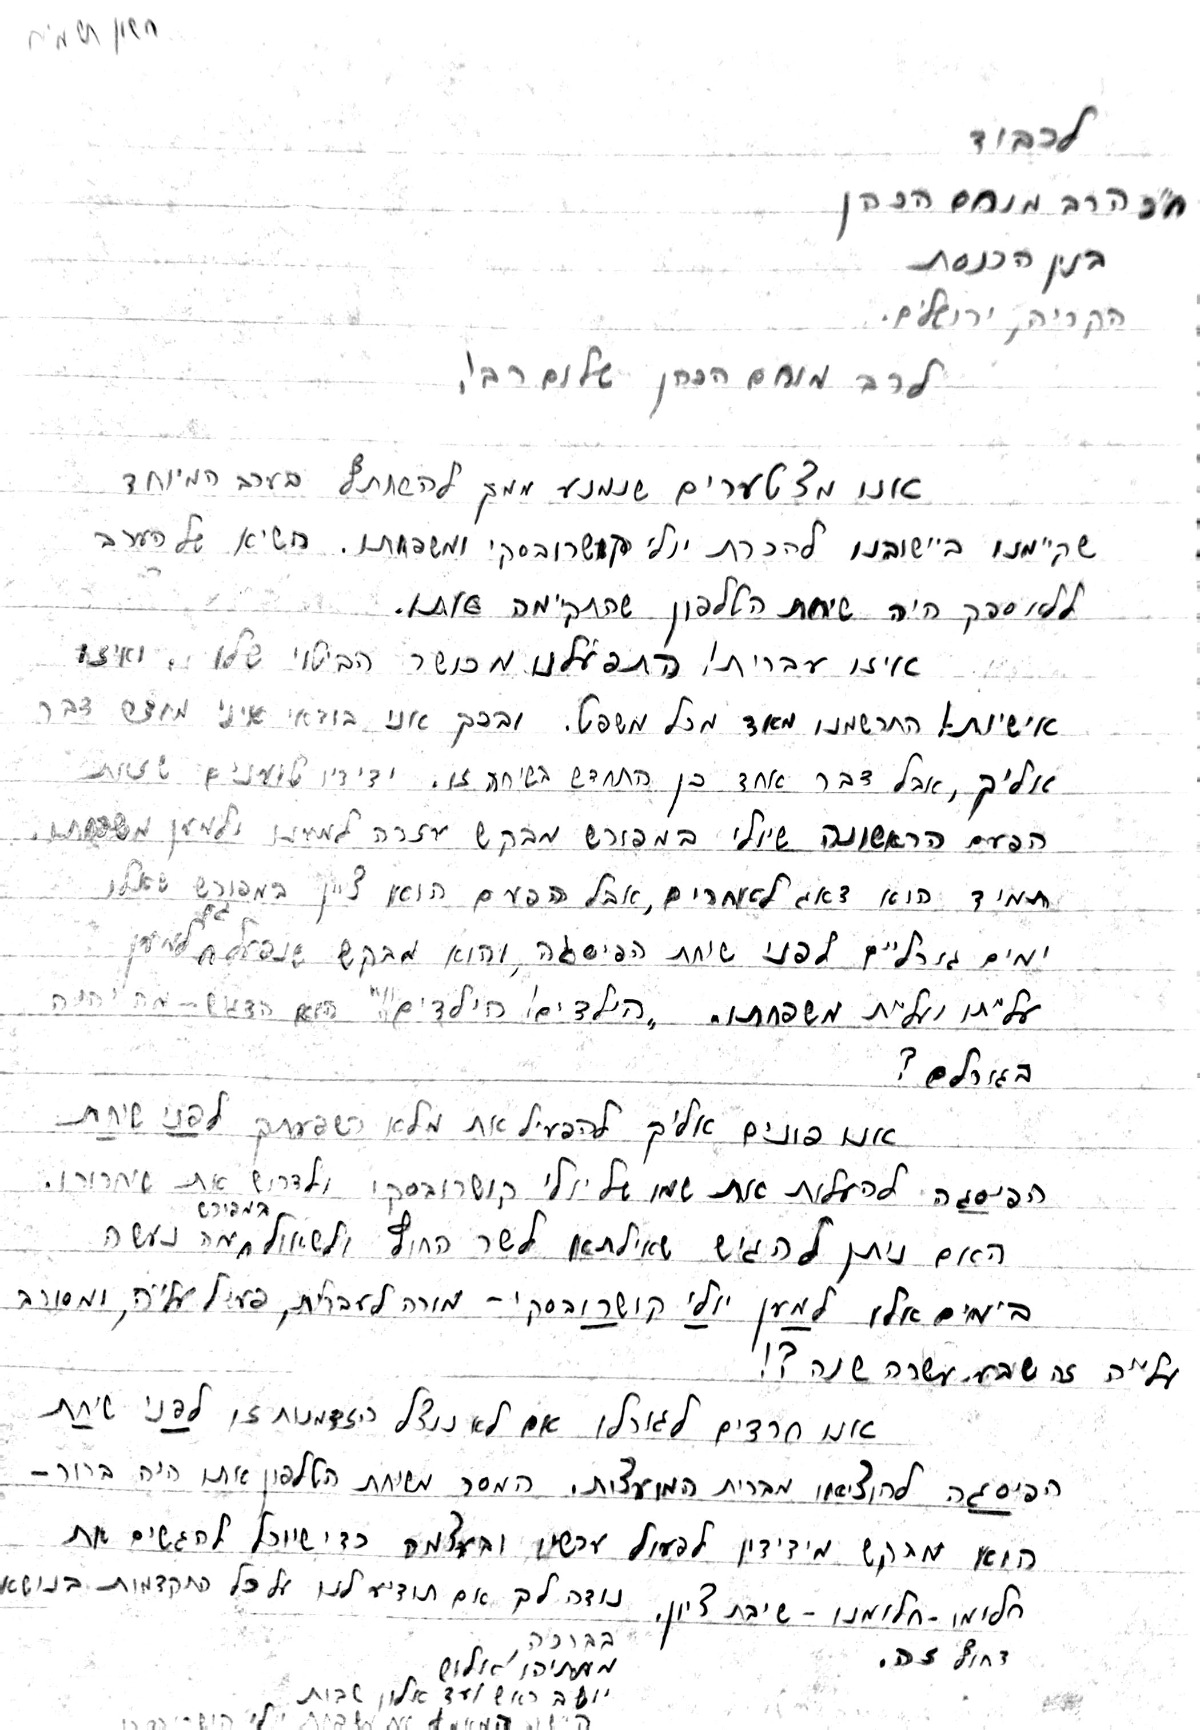 חשון תשמ"ח
לכבוד
ח"כ הרב מנחם הכהן
בנין הכנסת
הקריה, ירושלים.
לרב מנחם הכהן שלום רב!
אנו מצטערים שנמנע ממך להשתתף בערב המיוחד
שקיימנו ביישובנו להכרת יולי קושרובסקי ומשפחתו. השיא של הערב
ללא ספק היה שיחת הטלפון שהתקיימה אותו.
איזו עברית! התפעלנו מכושר הביטוי שלו. ואיזו
אישיות! התרשמנו מאד מכל משפט. ובכך אני בודאי אינני מחדש דבר
אליך, אבל דבר אחד כן התחדש בשיחה זו. ידידיו טוענים שזאת
הפעם הראשונה שיולי במפורש מבקש עזרה למענו ולמען משפחתו.
תמיד הוא דאג לאחרים, אבל הפעם הוא ציין במפורש שאלו
ימים גורליים לפני שיחת הפיסגה, והוא מבקש שנפעל גם למען
עלייתו ועליית משפחתו. "הילדים! הילדים!!" הוא הדגש - מה יהיה
בגורלם?
אנו פונים אליך להפעיל את מלא השפעתך לפני שיחת
הפיסגה להעלות את שמו של יולי קושרובסקי ולדרוש את שיחרורו.
האם ניתן להגיש שאילתא לשר החוץ ולשאול במפורש מה נעשה
בימים אלו למען יולי קושרובסקי - מורה לעברית, פעיל עלייה, ומסורב
עלייה זה שבע עשרה שנה?!
אנו חרדים לגורלו אם לא ננצל הזדמנות זו לפני שיחת
הפיסגה להוציאו מברית המועצות. המסר משיחת הטלפון אתו היה ברור -
הוא מבקש מידידיו לפעול עכשיו ובעצמה כדי שיוכל להגשים את
חלומו - חלומנו - שיבת ציון. נודה לך אם תודיע לנו על כל התקדמות בנושא
דחוף זה.
בברכה,
מתתיהו
יושב ראש ועד אלון שבות
משפחת יולי קושרובסקי